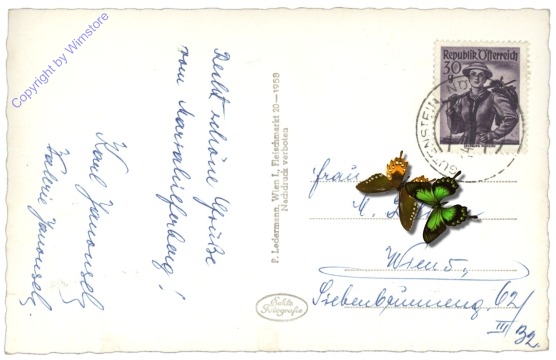 Copyright by Wimstore
Recht schöne Grüße
vom Mariahilferberg!
Karl Janousek
Valerie Janousek
P. Ledermann, Wien I., Fleischmarkt 20 — 1958
Nachdruck verboten
Echte
Fotografie
Republik Österreich
30
GUTENSTEIN
Frau
M.
Wien 5,
Siebenbrunneng. 62/
III/32.